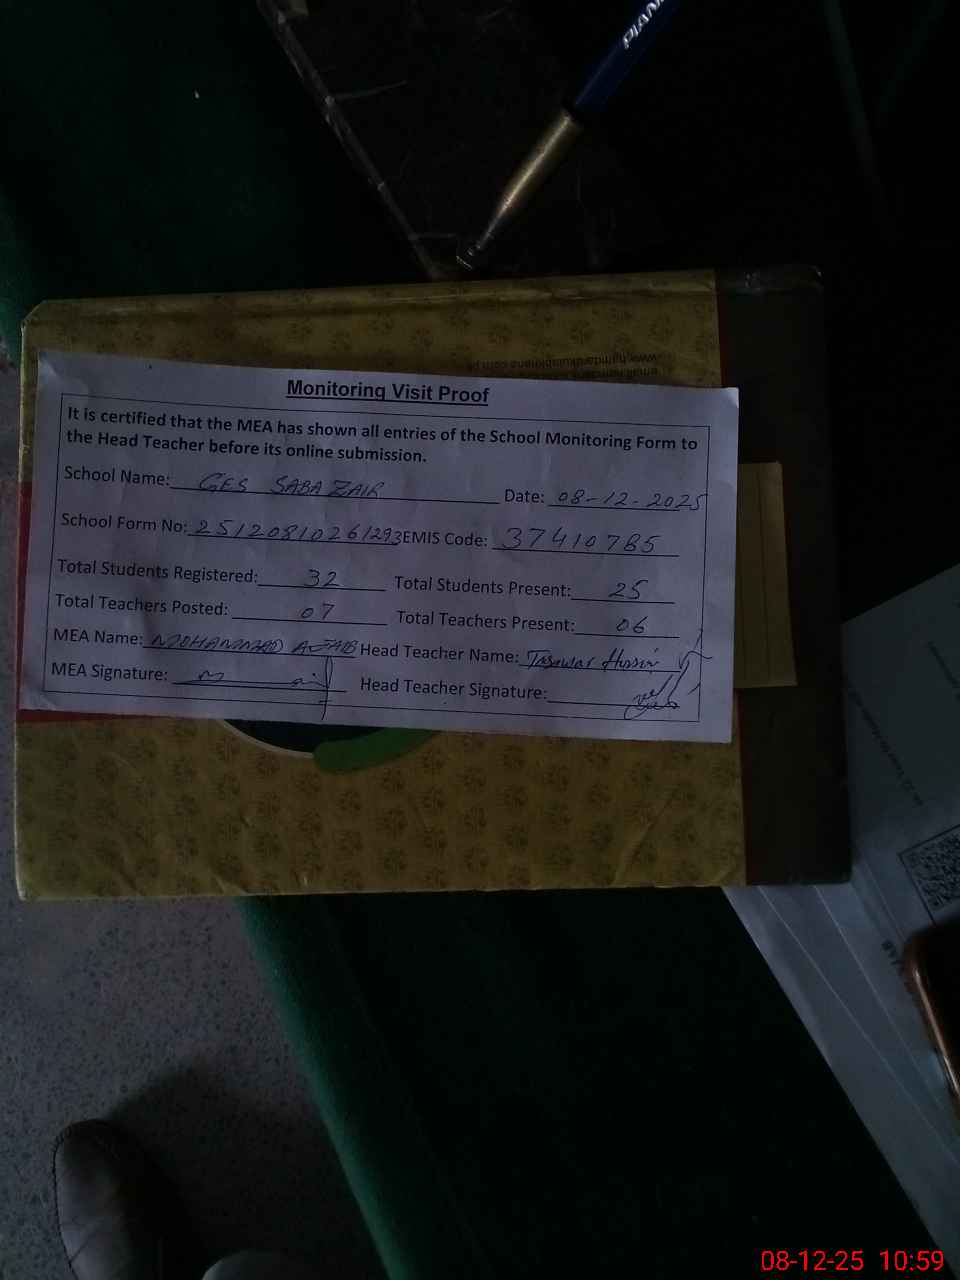 PIANO
Monitoring Visit Proof
It is certified that the MEA has shown all entries of the School Monitoring Form to
the Head Teacher before its online submission.
School Name: GES SABAZAIR Date: 08-12-2025
School Form No: 25120810261293 EMIS Code: 37410785
Total Students Registered: 32 Total Students Present: 25
Total Teachers Posted: 07 Total Teachers Present: 06
MEA Name: MOHAMMAD Head Teacher Name: Tasawar Hussain
MEA Signature: Head Teacher Signature:
08-12-25 10:59